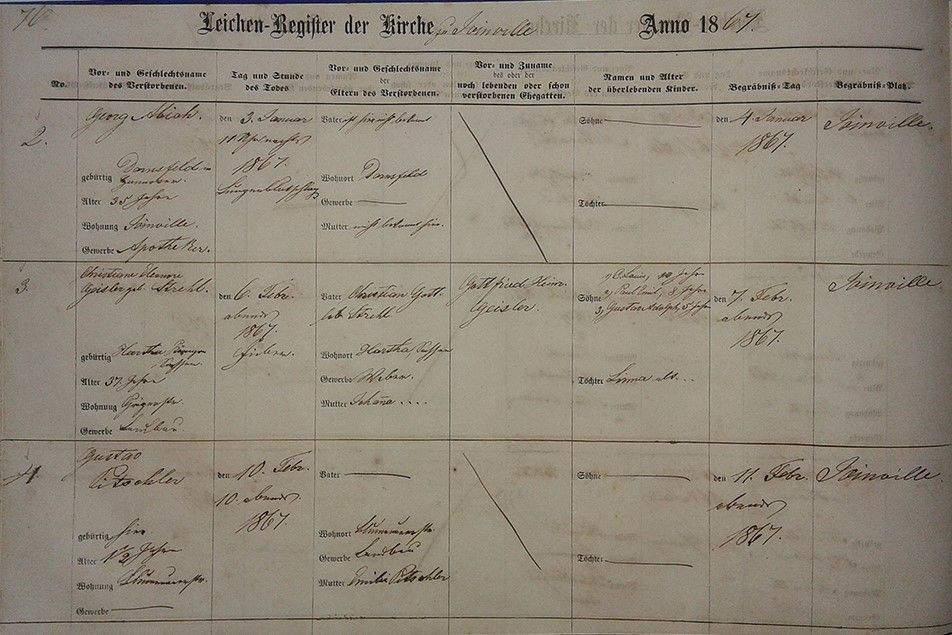 Leichen-Register der Kirche zu Joinville Anno 1867.
No.
Vor- und Geschlechtsname
des Verstorbenen.
Tag und Stunde
des Todes
Vor- und Geschlechtsname
der
Eltern des Verstorbenen.
Vor- und Zuname
des oder der
noch lebenden oder schon
verstorbenen Ehegatten.
Namen und Alter
der überlebenden Kinder.
Begräbniß-Tag
Begräbniß-Platz.
2.
Georg Abich.
gebürtig Dornsfeld in
Hannover.
Alter 35 Jahre
Wohnung Joinville.
Gewerbe Apotheker.
den 3. Januar
11 Uhr nachts
1867.
Vater ist hier nicht bekannt
Wohnort Dornsfeld
Gewerbe
Mutter nicht bekannt hier.
Söhne
Töchter
den 4. Januar
1867.
Joinville.
3
Christiane Eleonore
Geisler geb. Strehl.
gebürtig Hartha
Sachsen.
Alter 37 Jahre
Wohnung
Gewerbe Landbau.
den 6. Febr.
abends
1867.
Fieber.
Vater Christian Gott-
lieb Strehl
Wohnort Hartha Sachsen
Gewerbe Weber.
Mutter Johanna ....
Gottfried Heinr.
Geisler.
Söhne
2, Paul Emil, 8 Jahre
3, Gustav Adolph, 5 Jahre
Töchter
den 7. Febr.
abends
1867.
Joinville.
4
Gustav
Pitschler
gebürtig hier
Alter 1 1/2 Jahre
Wohnung
Gewerbe
den 10. Febr.
10. abends
1867.
Vater
Wohnort
Gewerbe Landbau
Mutter Emilie Pitschler
Söhne
Töchter
den 11. Febr.
abends
1867.
Joinville